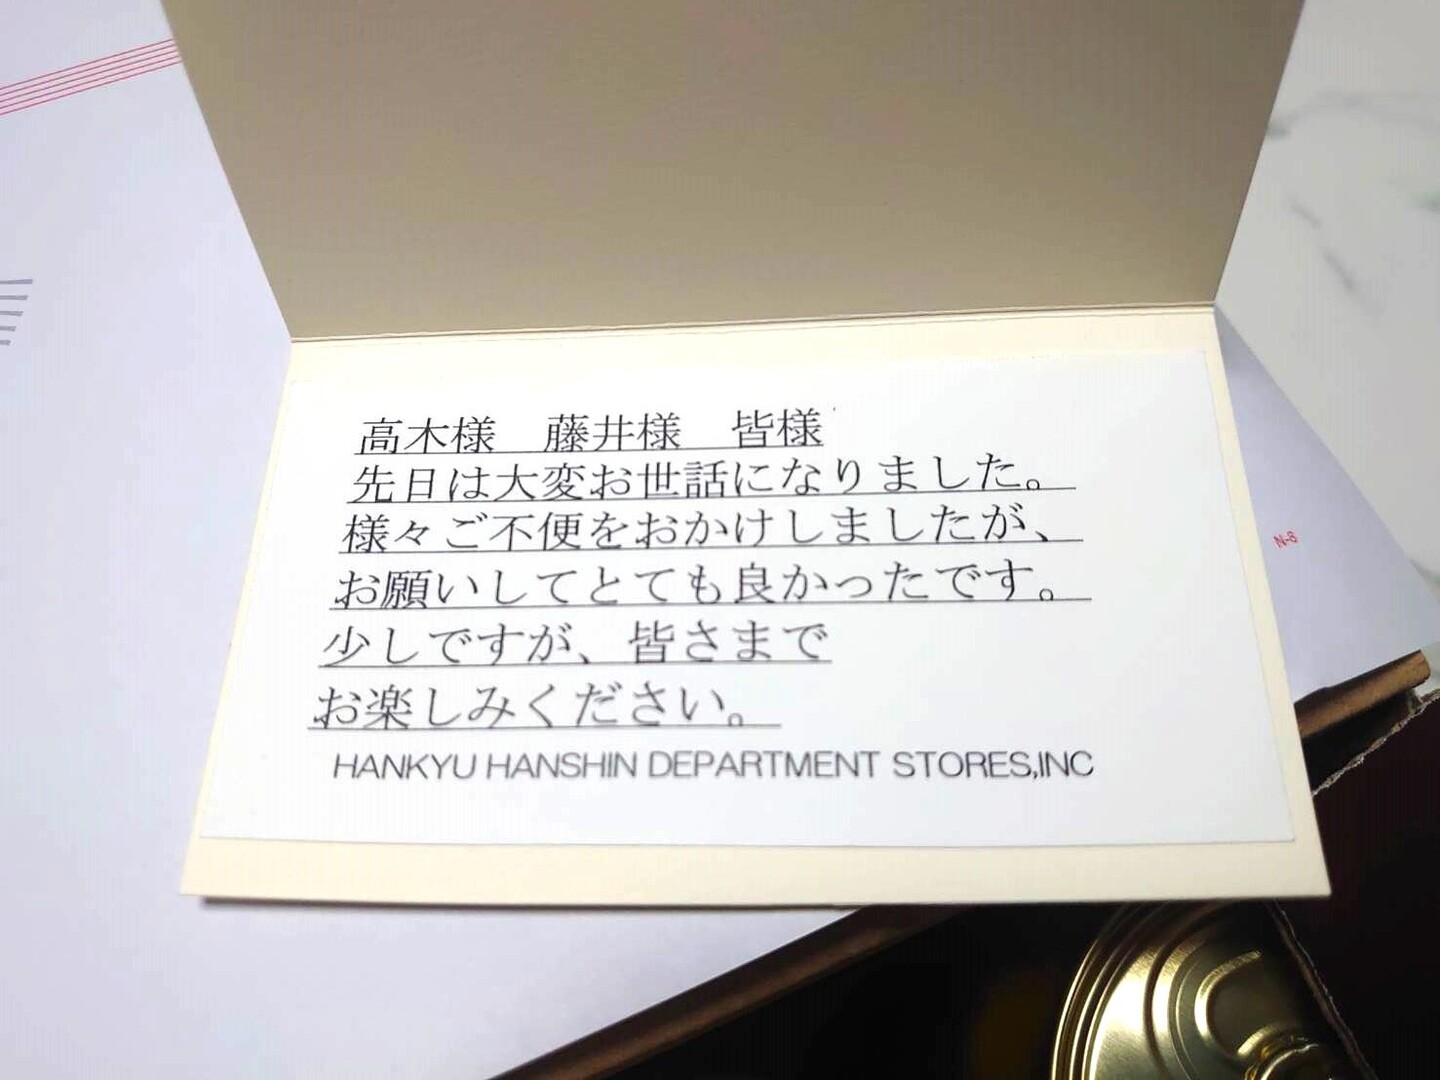 高木様　藤井様　皆様
先日は大変お世話になりました。
様々ご不便をおかけしましたが、
お願いしてとても良かったです。
少しですが、皆さまで
お楽しみください。
HANKYU HANSHIN DEPARTMENT STORES,INC
N-8